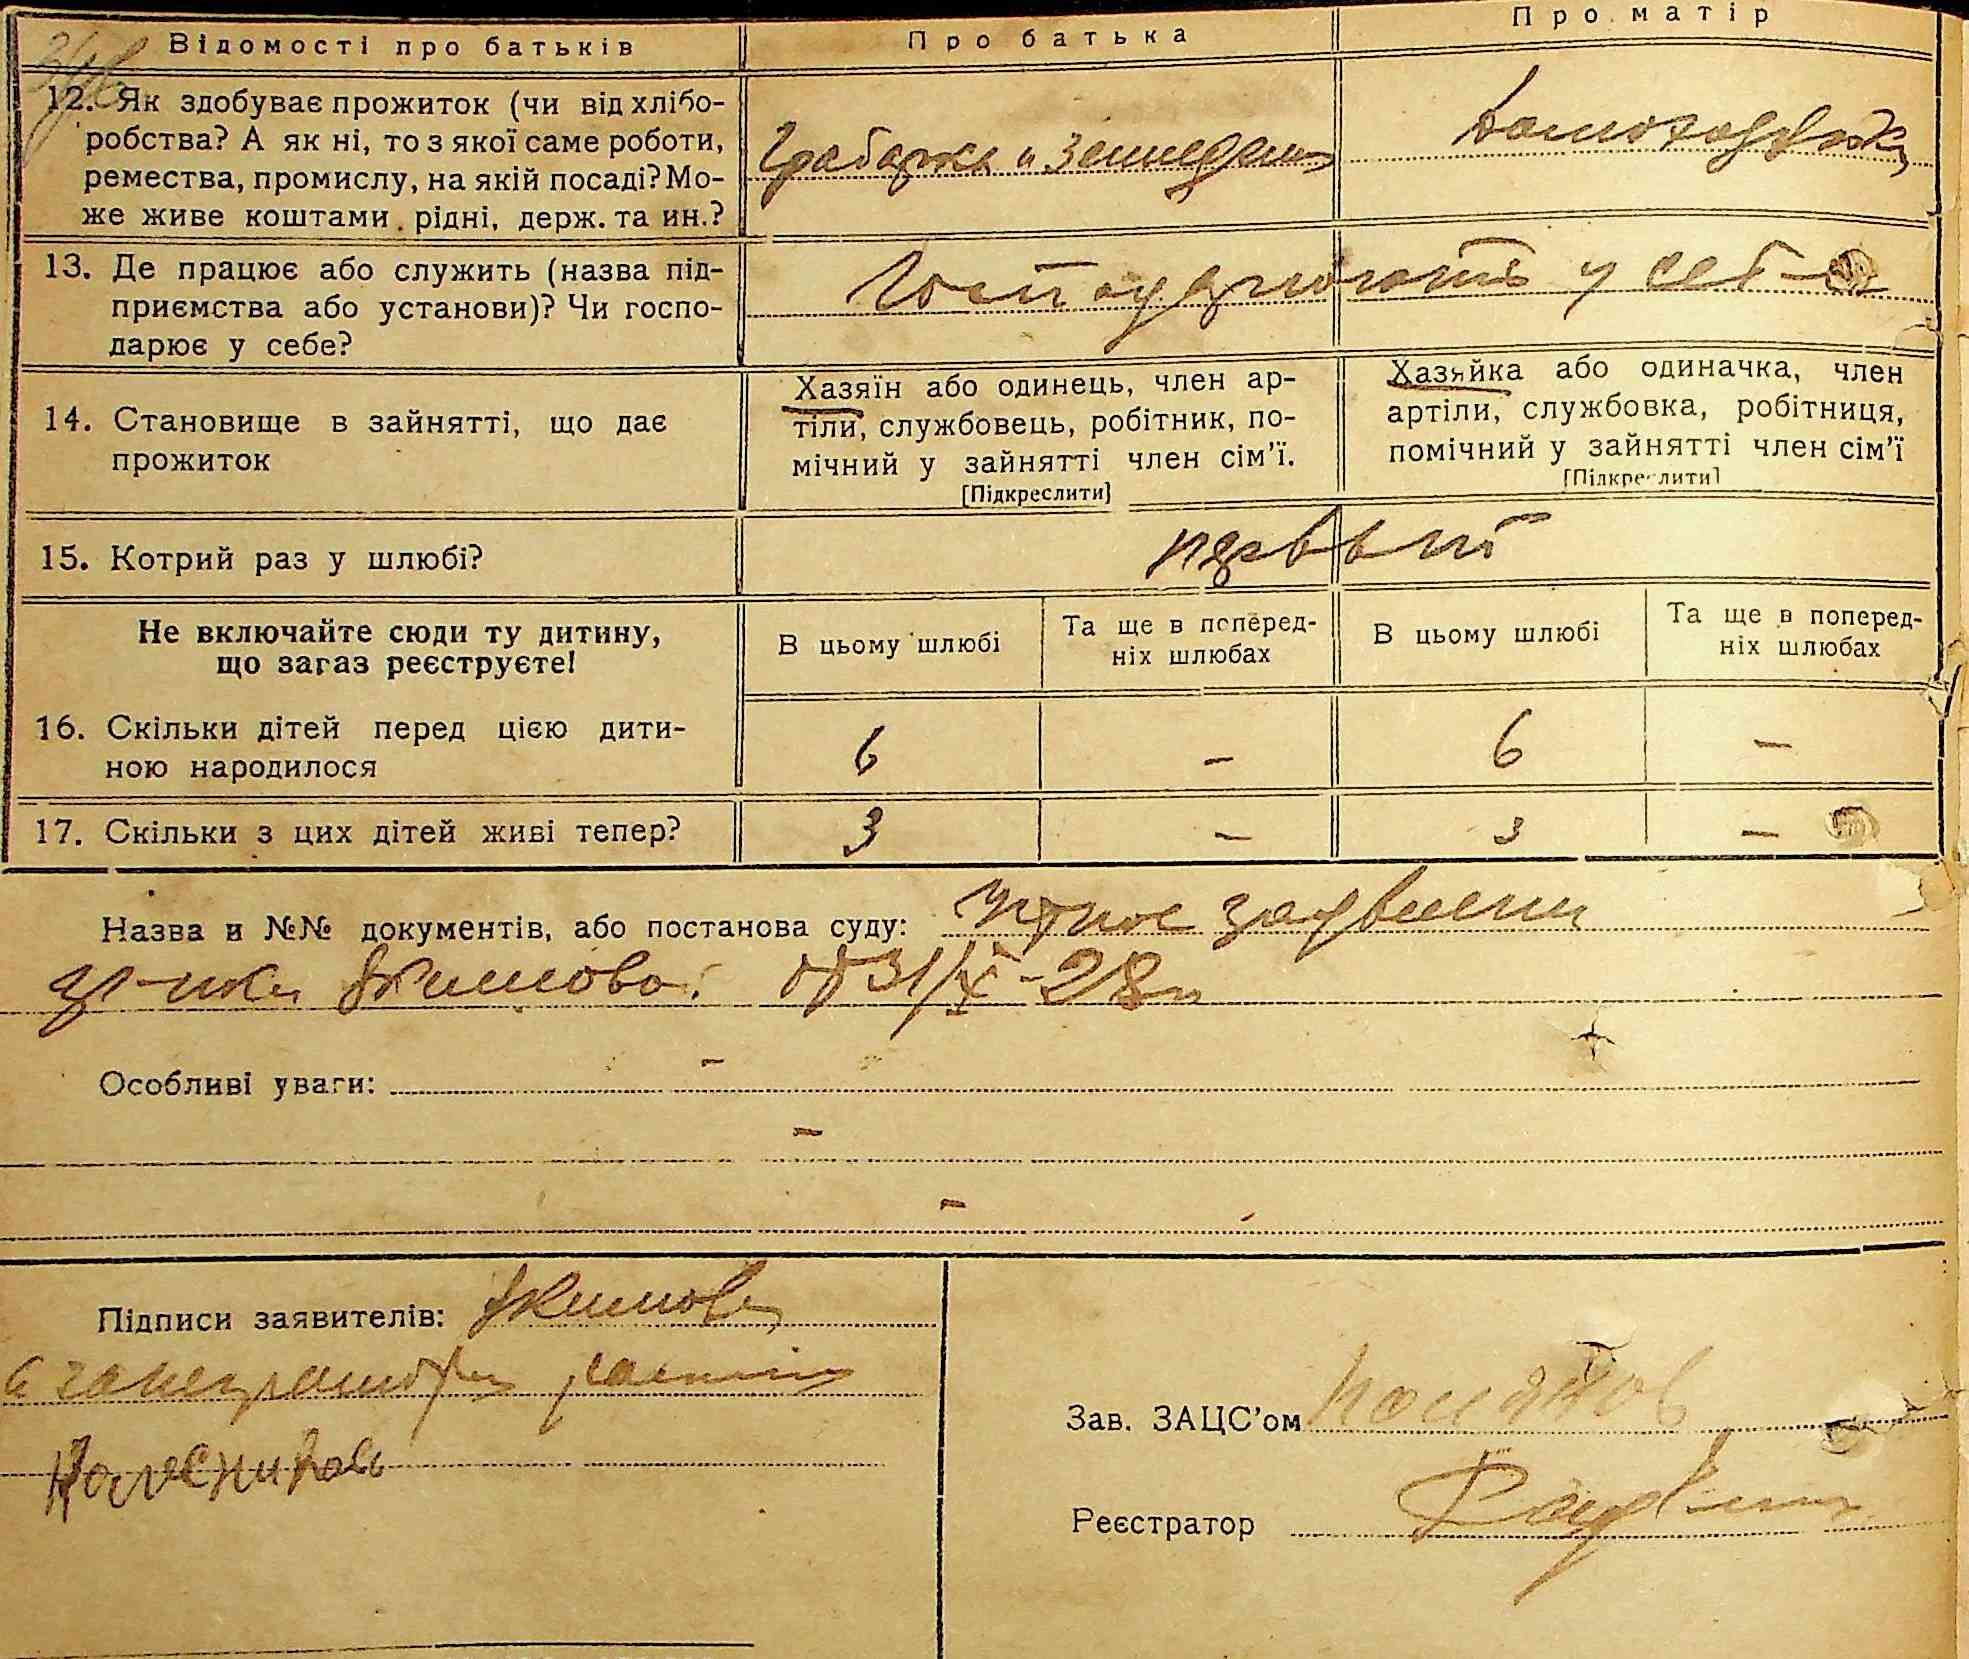 Відомості про батьків
Про батька
Про матір
12. Як здобуває прожиток (чи від хлібо-
робства? А як ні, то з якої саме роботи,
ремества, промислу, на якій посаді? Мо-
же живе коштами рідні, держ. та ин.?
Грабарка и земледелие
Домохозяйка
13. Де працює або служить (назва під-
приємства або установи)? Чи госпо-
дарює у себе?
Господарюють у себе
14. Становище в зайнятті, що дає
прожиток
Хазяїн або одинець, член ар-
тіли, службовець, робітник, по-
мічний у зайнятті член сім'ї.
[Підкреслити]
Хазяйка або одиначка, член
артіли, службовка, робітниця,
помічний у зайнятті член сім'ї
[Підкреслити]
15. Котрий раз у шлюбі?
первый
Не включайте сюди ту дитину,
що зараз реєструєте!
В цьому шлюбі
Та ще в поперед-
ніх шлюбах
В цьому шлюбі
Та ще в поперед-
ніх шлюбах
16. Скільки дітей перед цією дити-
ною народилося
6 – 6 –
17. Скільки з цих дітей живі тепер?
3 – 3 –
Назва и №№ документів, або постанова суду: устное заявление
гр-нки Акимова от 31/X-28
Особливі уваги: –
–
–
Підписи заявителів: Акимова
а за неграмотн
Колесников
Зав. ЗАЦС'ом
Реєстратор